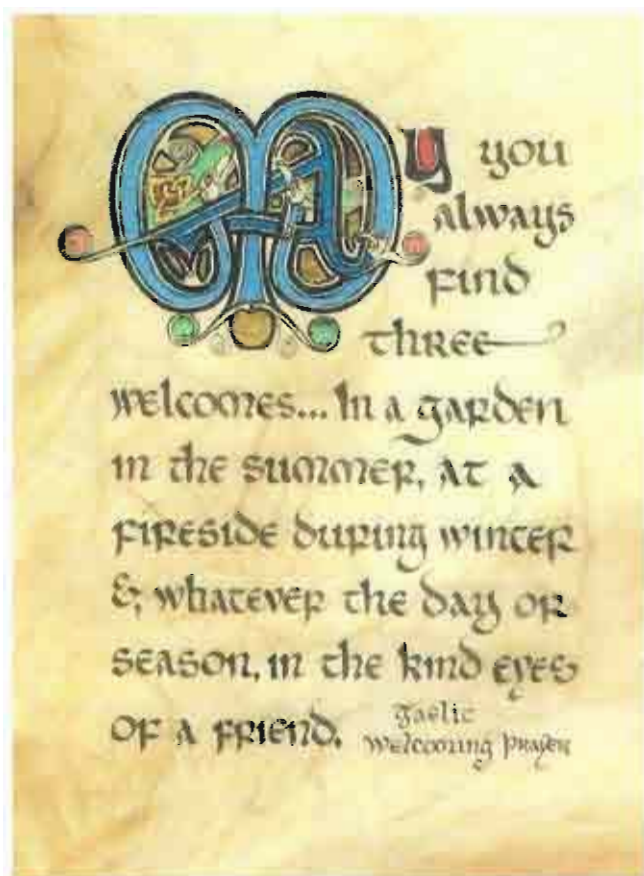 May you
always
find
three
welcomes... In a garden
in the summer, at a
fireside during winter
&, whatever the day or
season, in the kind eyes
of a friend.
Gaelic
Welcoming Prayer